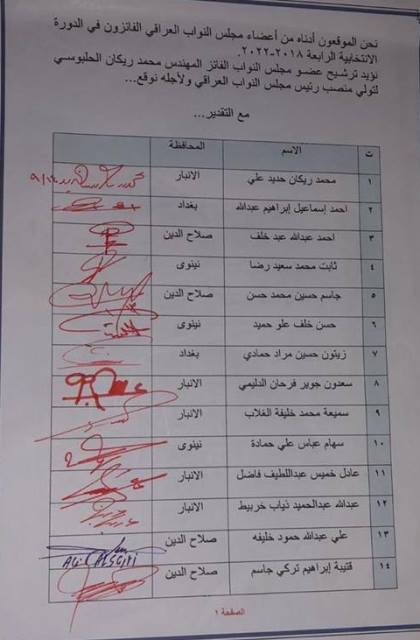 نحن الموقعون أدناه من أعضاء مجلس النواب العراقي الفائزون في الدورة
الانتخابية الرابعة ٢٠١٨-٢٠٢٢.
نؤيد ترشيح عضو مجلس النواب الفائز المهندس محمد ريكان الحلبوسي
لتولي منصب رئيس مجلس النواب العراقي ولأجله نوقع...
مع التقدير...
ت الاسم المحافظة
١ محمد ريكان حديد علي الانبار
٢ احمد إسماعيل إبراهيم عبدالله بغداد
٣ احمد عبدالله عبد خلف صلاح الدين
٤ ثابت محمد سعيد رضا نينوى
٥ جاسم حسين محمد حسن صلاح الدين
٦ حسن خلف علو حميد نينوى
٧ زيتون حسين مراد حمادي بغداد
٨ سعدون جوير فرحان الدليمي الانبار
٩ سميعة محمد خليفة الغلاب الانبار
١٠ سهام عباس علي حمادة نينوى
١١ عادل خميس عبداللطيف فاضل الانبار
١٢ عبدالله عبدالحميد ذياب خربيط الانبار
١٣ علي عبدالله حمود خليفه صلاح الدين
١٤ قتيبة إبراهيم تركي جاسم صلاح الدين
الصفحة ١